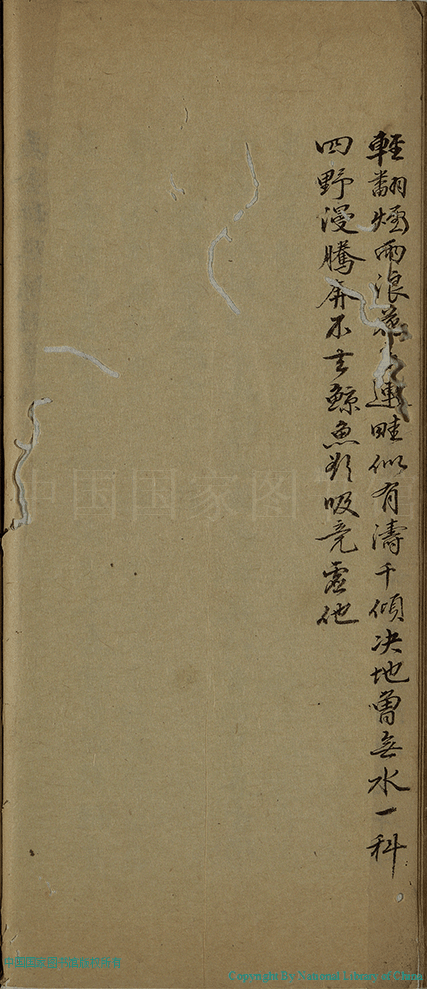 輕翻烟雨浪連畦似有濤千傾决地曾無水一科
四野漫騰奔不去鯨魚欲吸竟虛他
中国国家图书馆
中国国家图书馆版权所有
Copyright By National Library of China